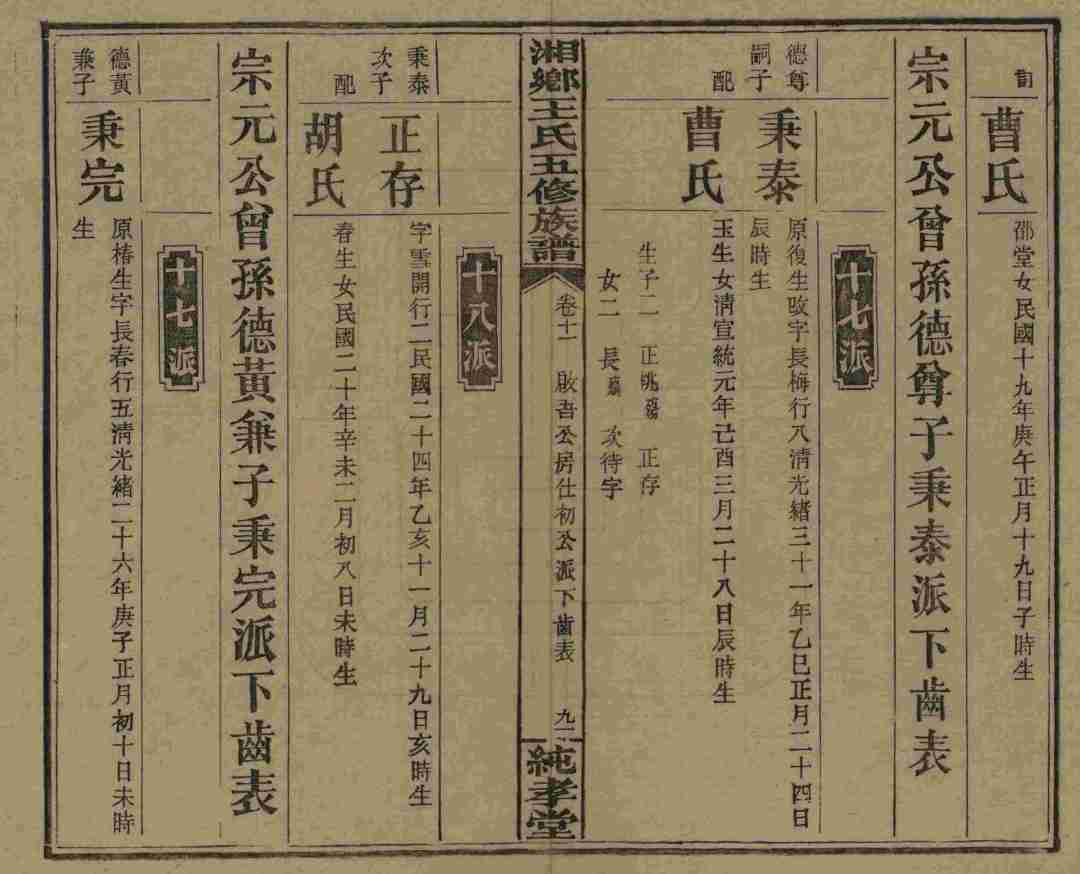 曹氏
邵堂女民國十九年庚午正月十九日子時生
宗元公曾孫德尊子秉泰派下齒表
十七派
德尊
嗣子
秉泰
原復生改字長梅行八清光緒三十一年乙巳正月二十四日
辰時生
配
曹氏
玉生女清宣統元年己酉三月二十八日辰時生
生子二 正姚殤 正存
女二 長殤 次待字
湘鄉王氏五修族譜
卷十一 啟吾公房仕初公派下齒表 九一
純孝堂
十八派
秉泰
次子
正存
字雪開行二民國二十四年乙亥十一月二十九日亥時生
配
胡氏
春生女民國二十年辛未二月初八日未時生
宗元公曾孫德黃兼子秉完派下齒表
十七派
德黃
兼子
秉完
原椿生字長春行五清光緒二十六年庚子正月初十日未時
生